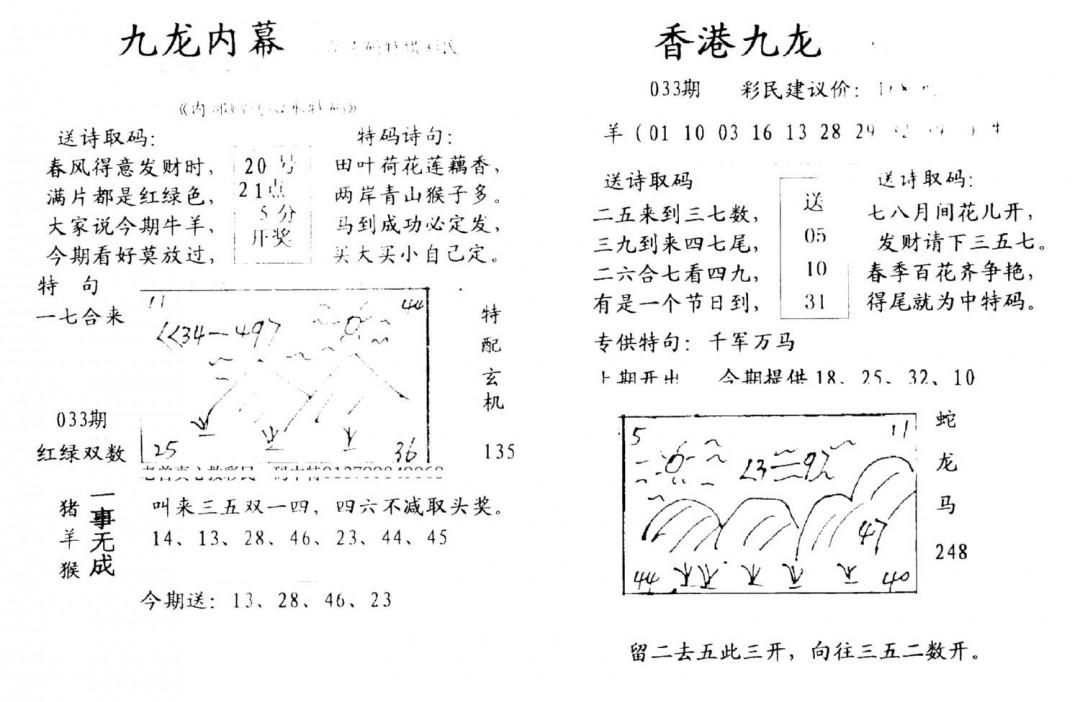 九龙内幕
送诗取码:
春风得意发财时,
满片都是红绿色,
大家说今期牛羊,
今期看好莫放过,
20号
21点
5分
开奖
特码诗句:
田叶荷花莲藕香,
两岸青山猴子多。
马到成功必定发,
买大买小自己定。
特 句
一七合来
033期
红绿双数
11
44
<<34—497
25
36
特
配
玄
机
135
猪
羊
猴
一事无成
叫来三五双一四,四六不减取头奖。
14、13、28、46、23、44、45
今期送: 13、28、46、23
香港九龙
033期 彩民建议价:
羊 ( 01 10 03 16 13 28 29
送诗取码
二五来到三七数,
三九到来四七尾,
二六合七看四九,
有是一个节日到,
送
05
10
31
送诗取码:
七八月间花儿开,
发财请下三五七。
春季百花齐争艳,
得尾就为中特码。
专供特句: 千军万马
上期开出 今期提供 18、25、32、10
5
11
47
44
40
蛇
龙
马
248
留二去五此三开,向往三五二数开。